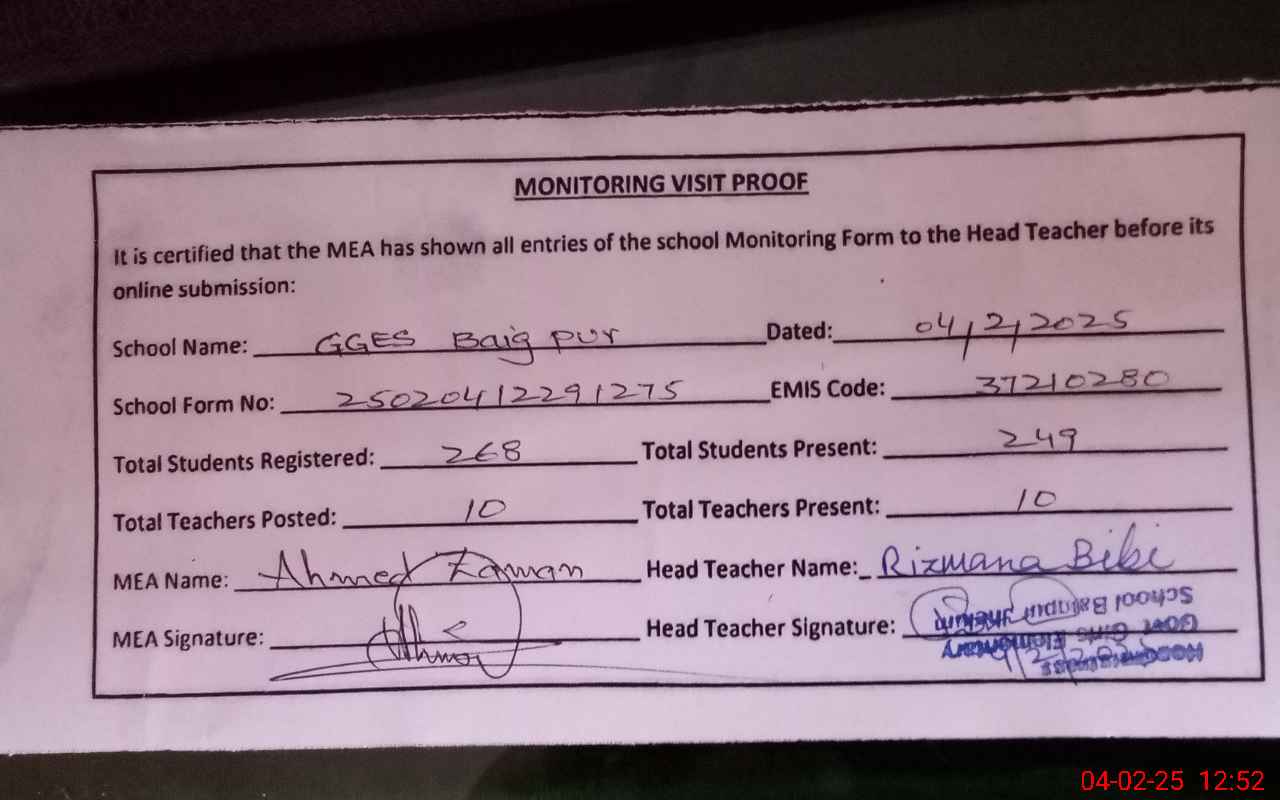 MONITORING VISIT PROOF
It is certified that the MEA has shown all entries of the school Monitoring Form to the Head Teacher before its
online submission:
School Name: GGES Baigpur Dated: 04/2/2025
School Form No: 25020412291275 EMIS Code: 37210280
Total Students Registered: 268 Total Students Present: 249
Total Teachers Posted: 10 Total Teachers Present: 10
MEA Name: Ahmed Zaman Head Teacher Name: Rizwana Bibi
MEA Signature: Head Teacher Signature:
Headmistress
Govt Girls Elementary
School Baigpur
04-02-25 12:52